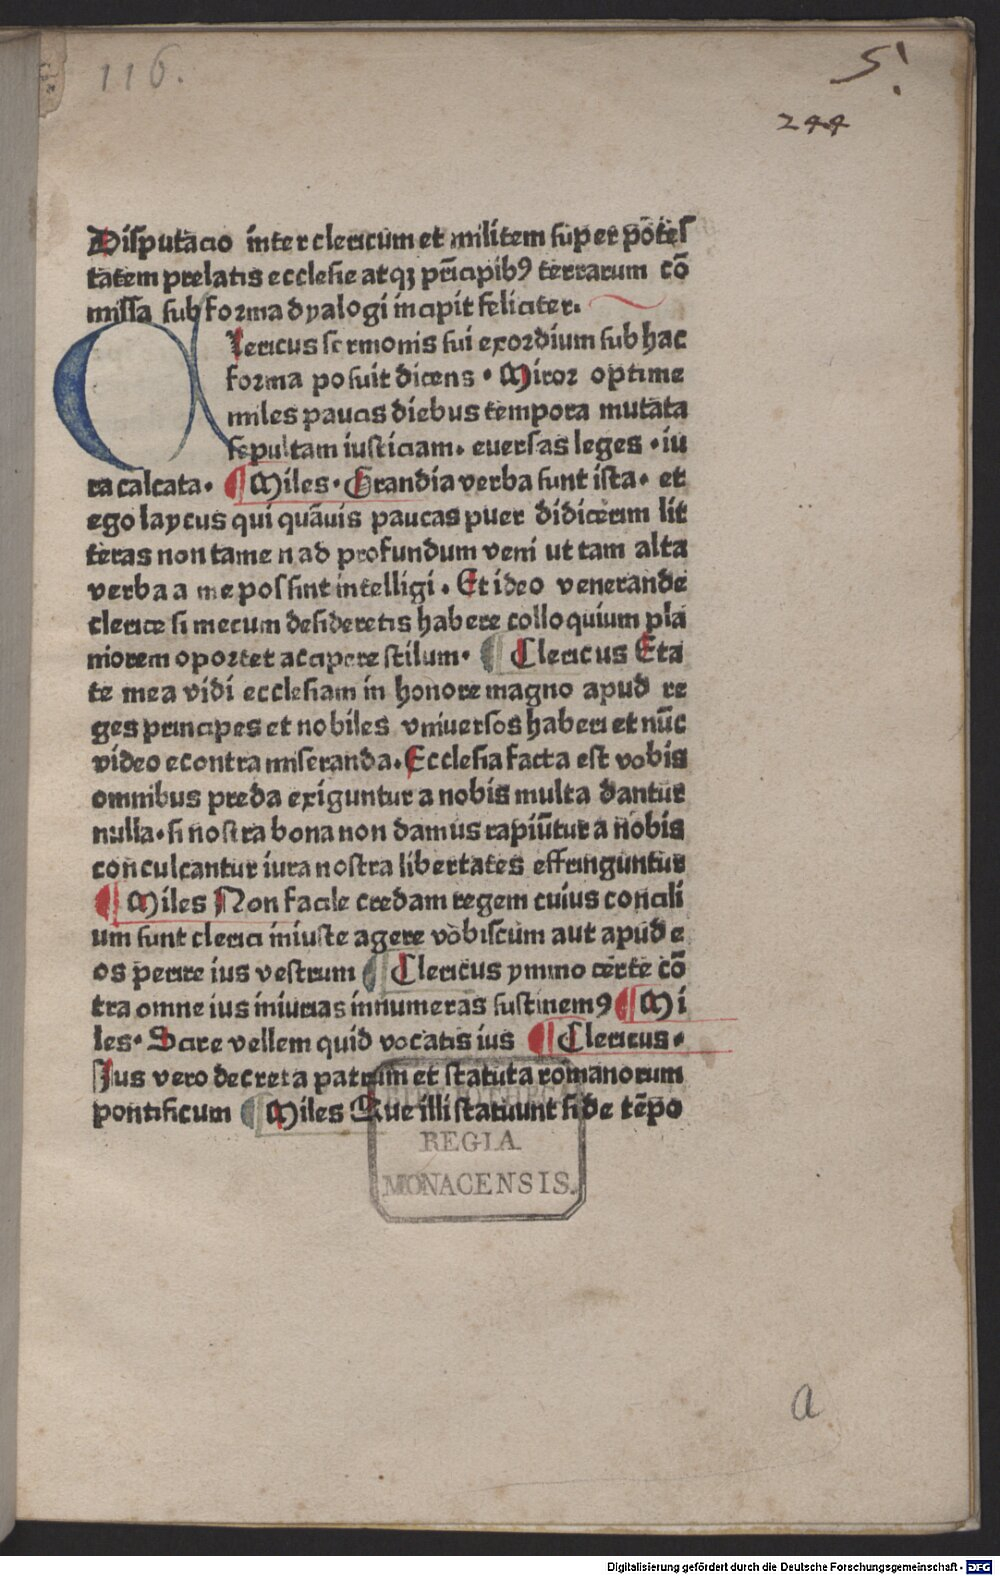 116.
5!
244
Disputacio inter clericum et militem super põtes
tatem prelatis ecclesie atqꝫ prĩcipibꝰ terrarum cõ
missa sub forma dyalogi incipit feliciter.
Clericus sermonis sui exordium sub hac
forma posuit dicens . Miror optime
miles paucis diebus tempora mutata
sepultam iusticiam. euersas leges . iu
ra calcata. ¶ Miles . Grandia verba sunt ista. et
ego laycus qui quãuis paucas puer didicerim lit
teras non tamen ad profundum veni ut tam alta
verba a me possint intelligi . Et ideo venerande
clerice si mecum desideretis habere colloquium pla
niorem oportet accipere stilum. ¶ Clericus Eta
te mea vidi ecclesiam in honore magno apud re
ges principes et nobiles vniuersos haberi et nũc
video econtra miseranda. Ecclesia facta est vobis
omnibus preda exiguntur a nobis multa dantur
nulla. si nostra bona non damus rapiũtur a nobis
conculcantur iura nostra libertates effringuntur
¶ Miles Non facile credam regem cuius concili
um sunt clerici iniuste agere vobiscum aut apud e
os perire ius vestrum ¶ Clericus ymmo certe cõ
tra omne ius iniurias innumeras sustinemꝰ ¶ Mi
les. Scire vellem quid vocatis ius ¶ Clericus.
Jus vero decreta patrum et statuta romanorum
pontificum ¶ Miles Que illi statuunt si de tẽpo
BIBLIOTHECA
REGIA
MONACENSIS.
a
Digitalisierung gefördert durch die Deutsche Forschungsgemeinschaft - DFG